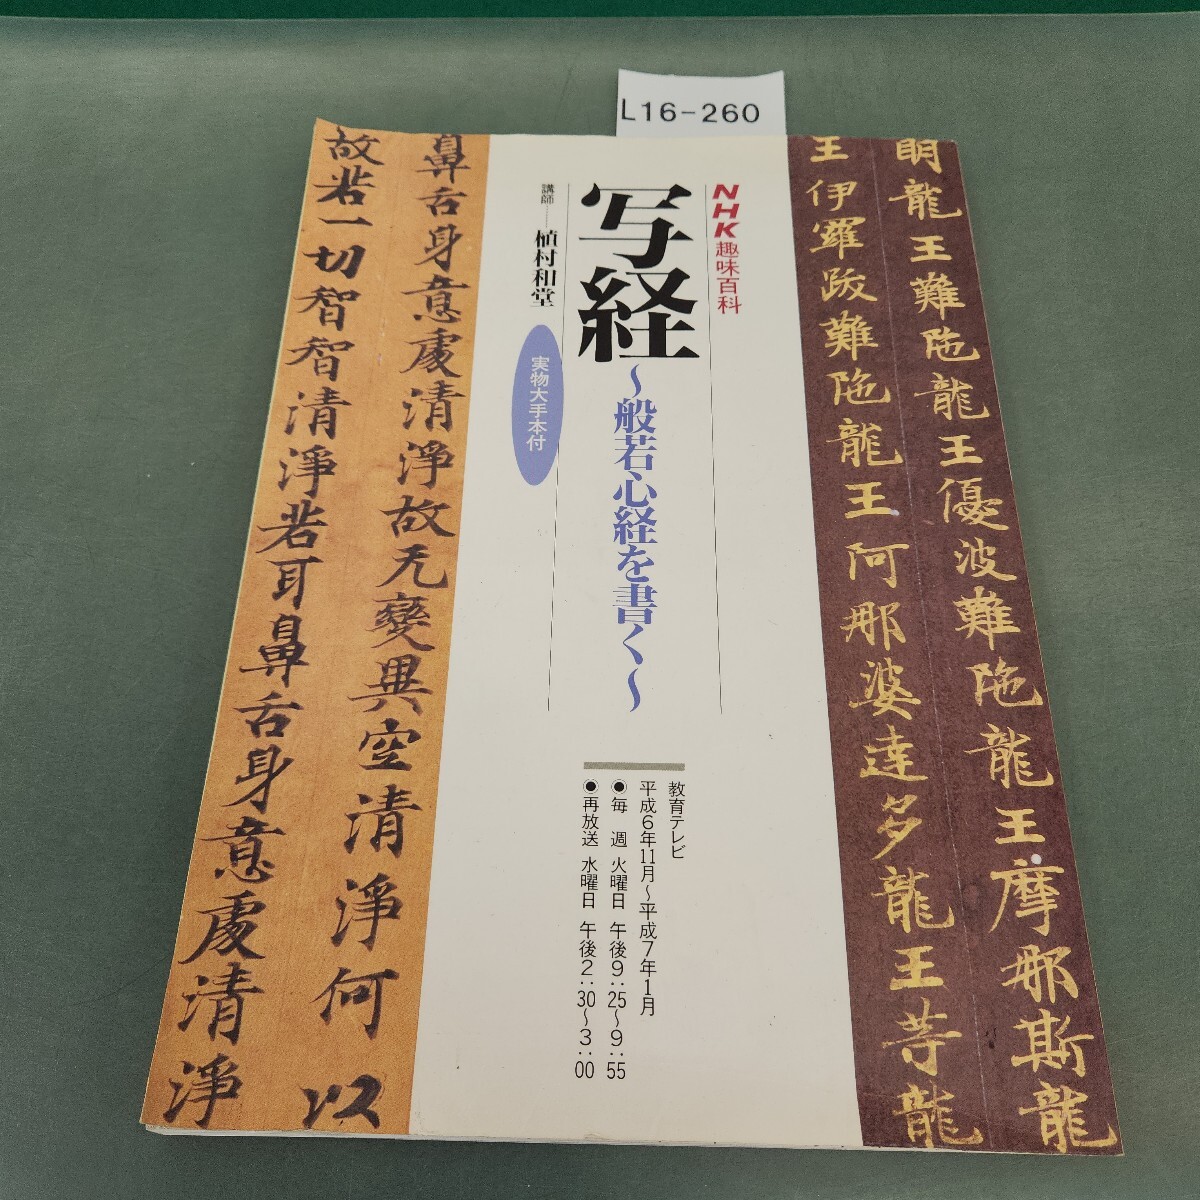 L16-260
明龍王難陁龍王優波難陁龍王摩那斯龍
王伊羅跋難陁龍王阿那婆達多龍王等龍
NHK趣味百科
写経
〜般若心経を書く〜
講師──植村和堂
実物大手本付
教育テレビ
平成6年11月〜平成7年1月
●毎 週 火曜日 午後9:25〜9:55
●再放送 水曜日 午後2:30〜3:00
鼻舌身意處清淨故无變異空清淨何以
故若一切智智清淨若耳鼻舌身意處清淨